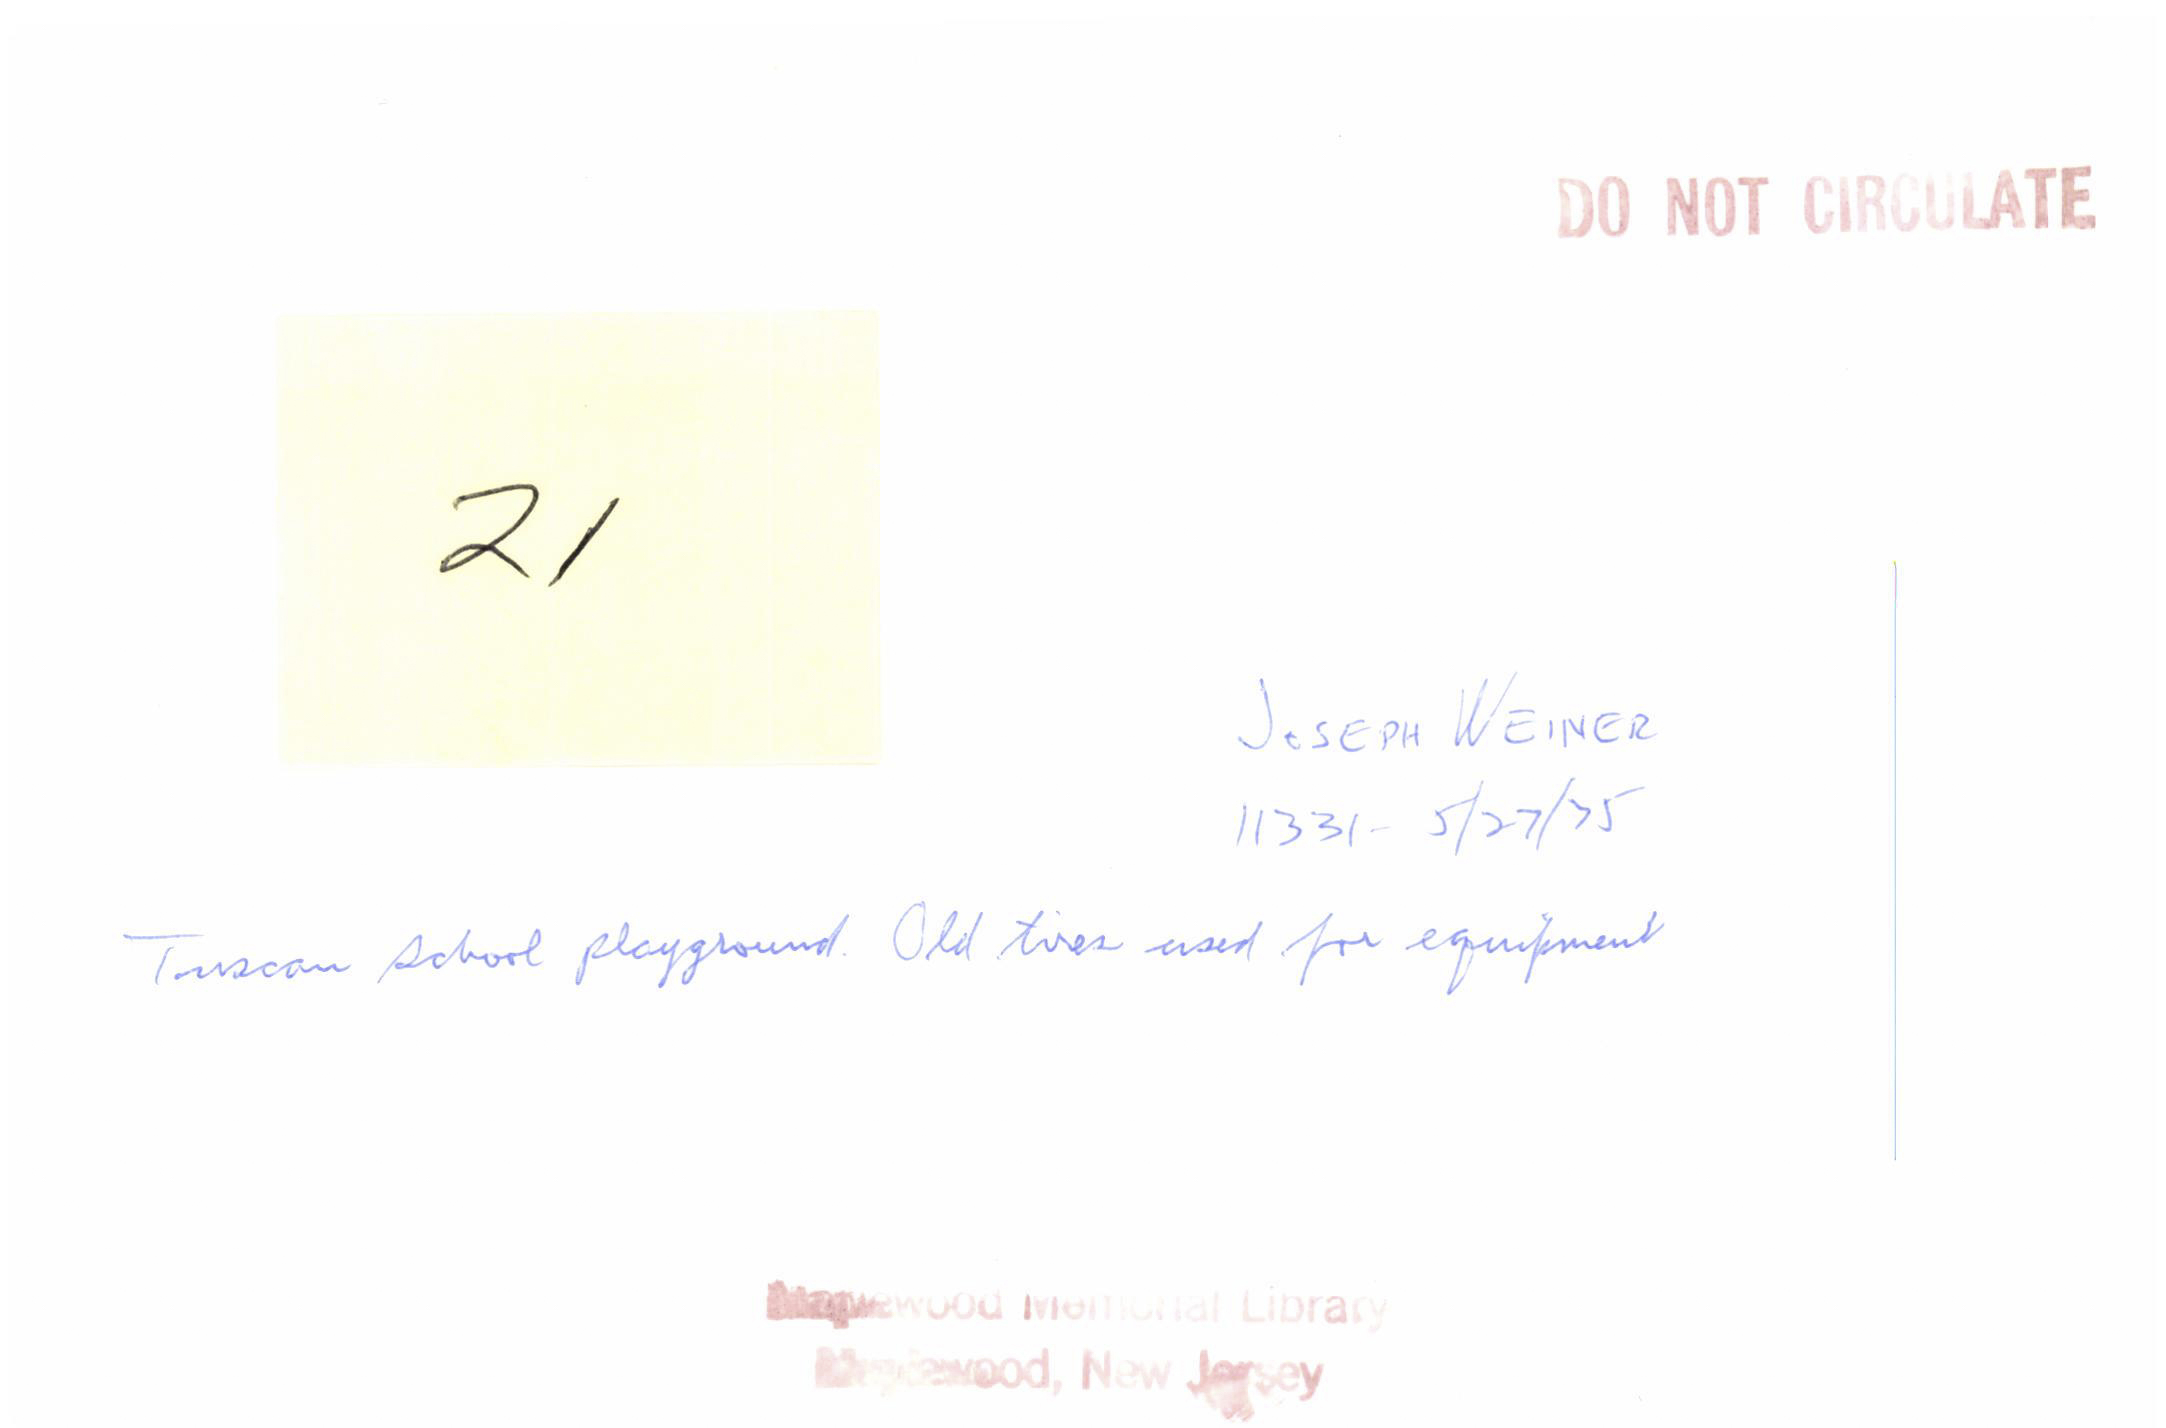 DO NOT CIRCULATE
21
JOSEPH WEINER
11331- 5/27/75
Tuscan School playground. Old tires used for equipment
Maplewood Memorial Library
Maplewood, New Jersey